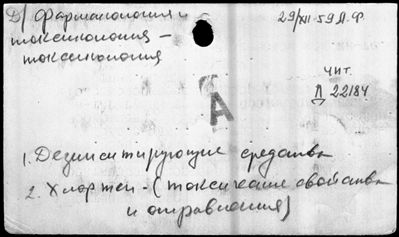 D/ Фармакология и
токсикология —
токсикология
29/XII-59 Л.Ф.
чит.
Д 22184
А
1. Дезинсектирующие средства
2. Хлортен - (токсические свойства
и отравления)